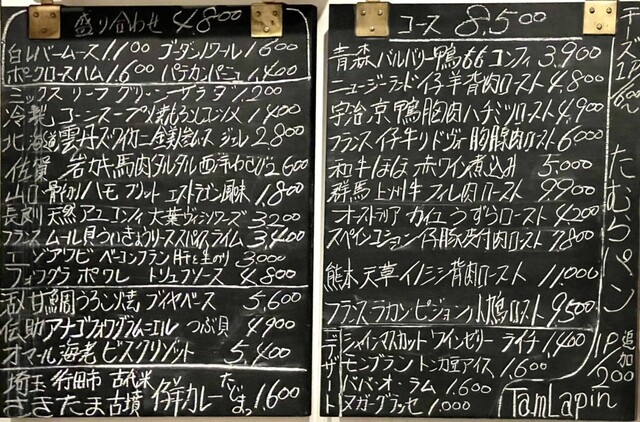 盛り合わせ 4,800
白レバームース 1,100 ゴーダノワール 1,600
ポークロースハム 1,600 パラカンパーニュ 1,400
ミックスリーフグリーンサラダ 1,200
冷製コーンスープ 焼もろこしコンソメ 1,400
北海道 雲丹ズワイガニ ムース ジュレ 2,800
佐賀 岩ガキ馬肉タルタル西洋わさび 2,600
山口 骨切りハモ フリット エストラゴン風味 1,800
天然アユ コンフィ 大葉ヴィシソワーズ 3,200
フランス ムール貝 ういきょう リースス パイスライム 3,400
エゾアワビ ベーコンフラン 肝と生のり 3,000
フォアグラ ポワレ トリュフソース 4,800
甘鯛うろこ焼 ブイヤベース 5,600
伝助アナゴ フォアグラムニエル つぶ貝 4,900
オマール海老 ビスクリゾット 5,400
埼玉 行田市 古代米
さきたま古墳 カレー 1,600
コース 8,500
青森バルバリー鴨ももコンフィ 3,900
ニュージーランド仔羊背肉ロースト 4,800
宇治京鴨胸肉ハチミツロースト 4,900
フランス仔牛リドヴォー胸腺肉ロースト 6,000
和牛ほほ赤ワイン煮込み 5,000
群馬 上州牛フィレ肉ロースト 9,900
オーストラリア カイユうずらロースト 4,200
スペイン コション 乃豚皮付肉ロースト 7,800
熊本天草イノシシ背肉ロースト 11,000
フランス ラカンピジョン 小鳩ロースト 9,500
デザート
シャインマスカット ワインゼリー ライチ 1,400
モンブラン トンカ豆アイス 1,600
ババ・オ・ラム 1,600
ヌガーグラッセ 1,000
たむらパン
追加
1P/200
TamLapin